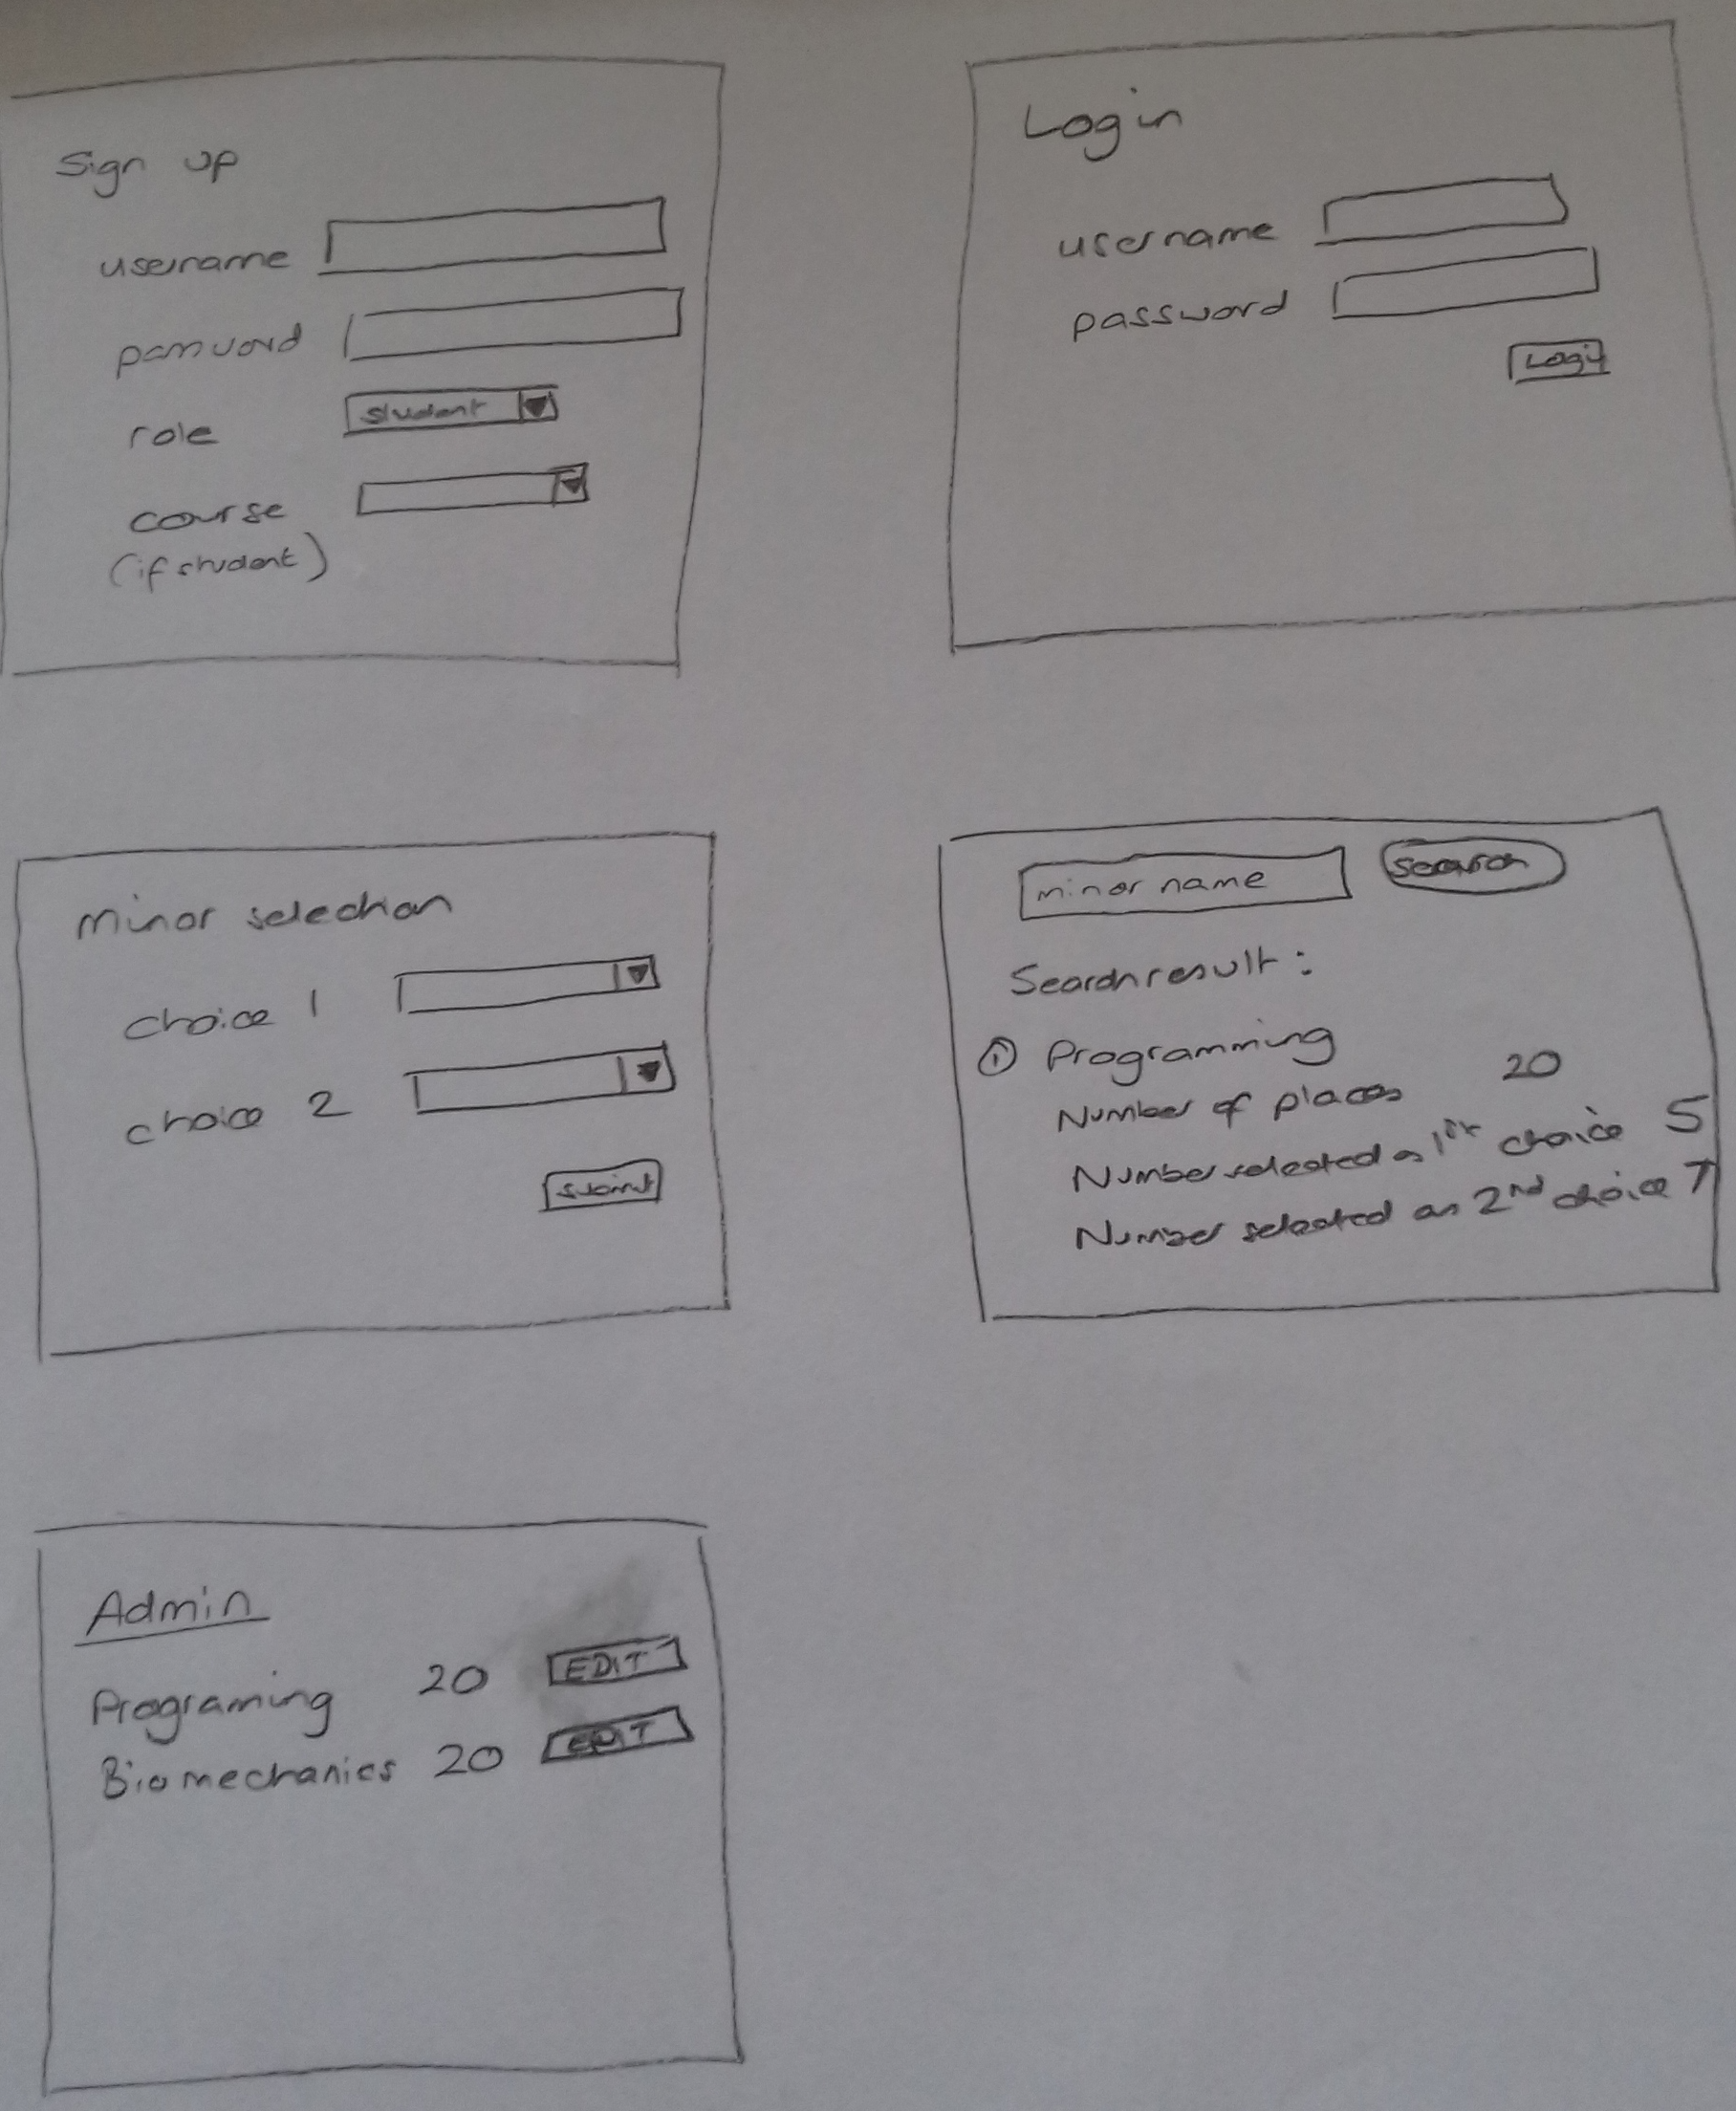 Sign up
username
password
role student
course
(if student)
Login
username
password
Login
Minor selection
choice 1
choice 2
submit
minor name search
Search result:
① Programming
Number of places 20
Number selected as 1st choice 5
Number selected as 2nd choice 7
Admin
Programing 20 EDIT
Biomechanics 20 EDIT